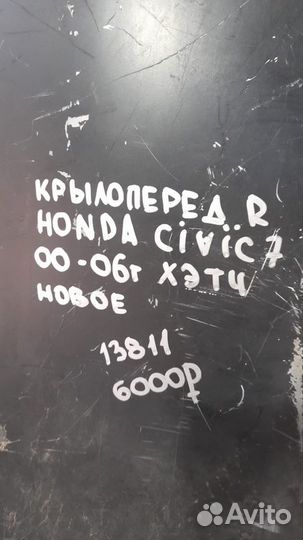 КРЫЛО ПЕРЕД R
HONDA CiViC 7
00-06г ХЭТЧ
НОВОЕ
13811
6000р
Avito